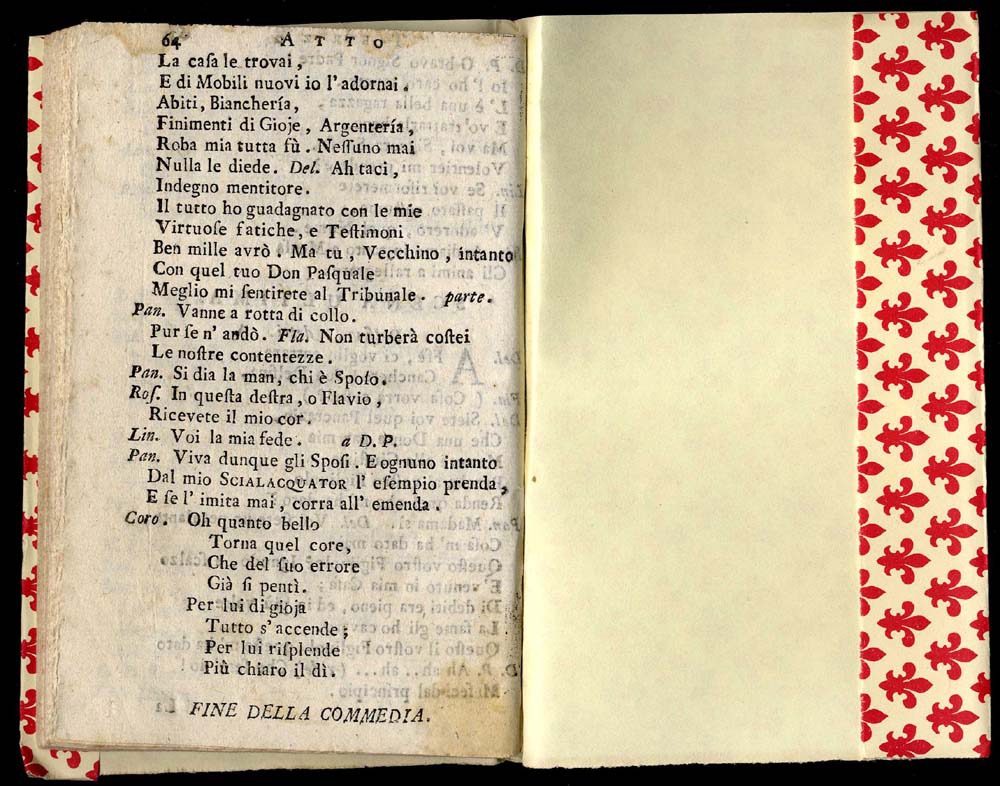 64 ATTO
La caſa le trovai,
E di Mobili nuovi io l'adornai.
Abiti, Biancherìa,
Finimenti di Gioje, Argenterìa,
Roba mia tutta fù. Neſſuno mai
Nulla le diede. Del. Ah taci,
Indegno mentitore.
Il tutto ho guadagnato con le mie
Virtuoſe fatiche, e Teſtimoni
Ben mille avrò. Ma tu, Vecchino, intanto
Con quel tuo Don Paſquale
Meglio mi ſentirete al Tribunale. parte.
Pan. Vanne a rotta di collo.
Pur ſe n' andò. Fla. Non turberà coſtei
Le noſtre contentezze.
Pan. Si dia la man, chi è Spoſo.
Roſ. In queſta deſtra, o Flavio,
Ricevete il mio cor.
Lin. Voi la mia fede. a D. P.
Pan. Viva dunque gli Spoſi. E ognuno intanto
Dal mio SCIALACQUATOR l' eſempio prenda,
E ſe l' imita mai, corra all' emenda.
Coro. Oh quanto bello
Torna quel core,
Che del ſuo errore
Già ſi pentì.
Per lui di gioja
Tutto s' accende;
Per lui riſplende
Più chiaro il dì.
FINE DELLA COMMEDIA.